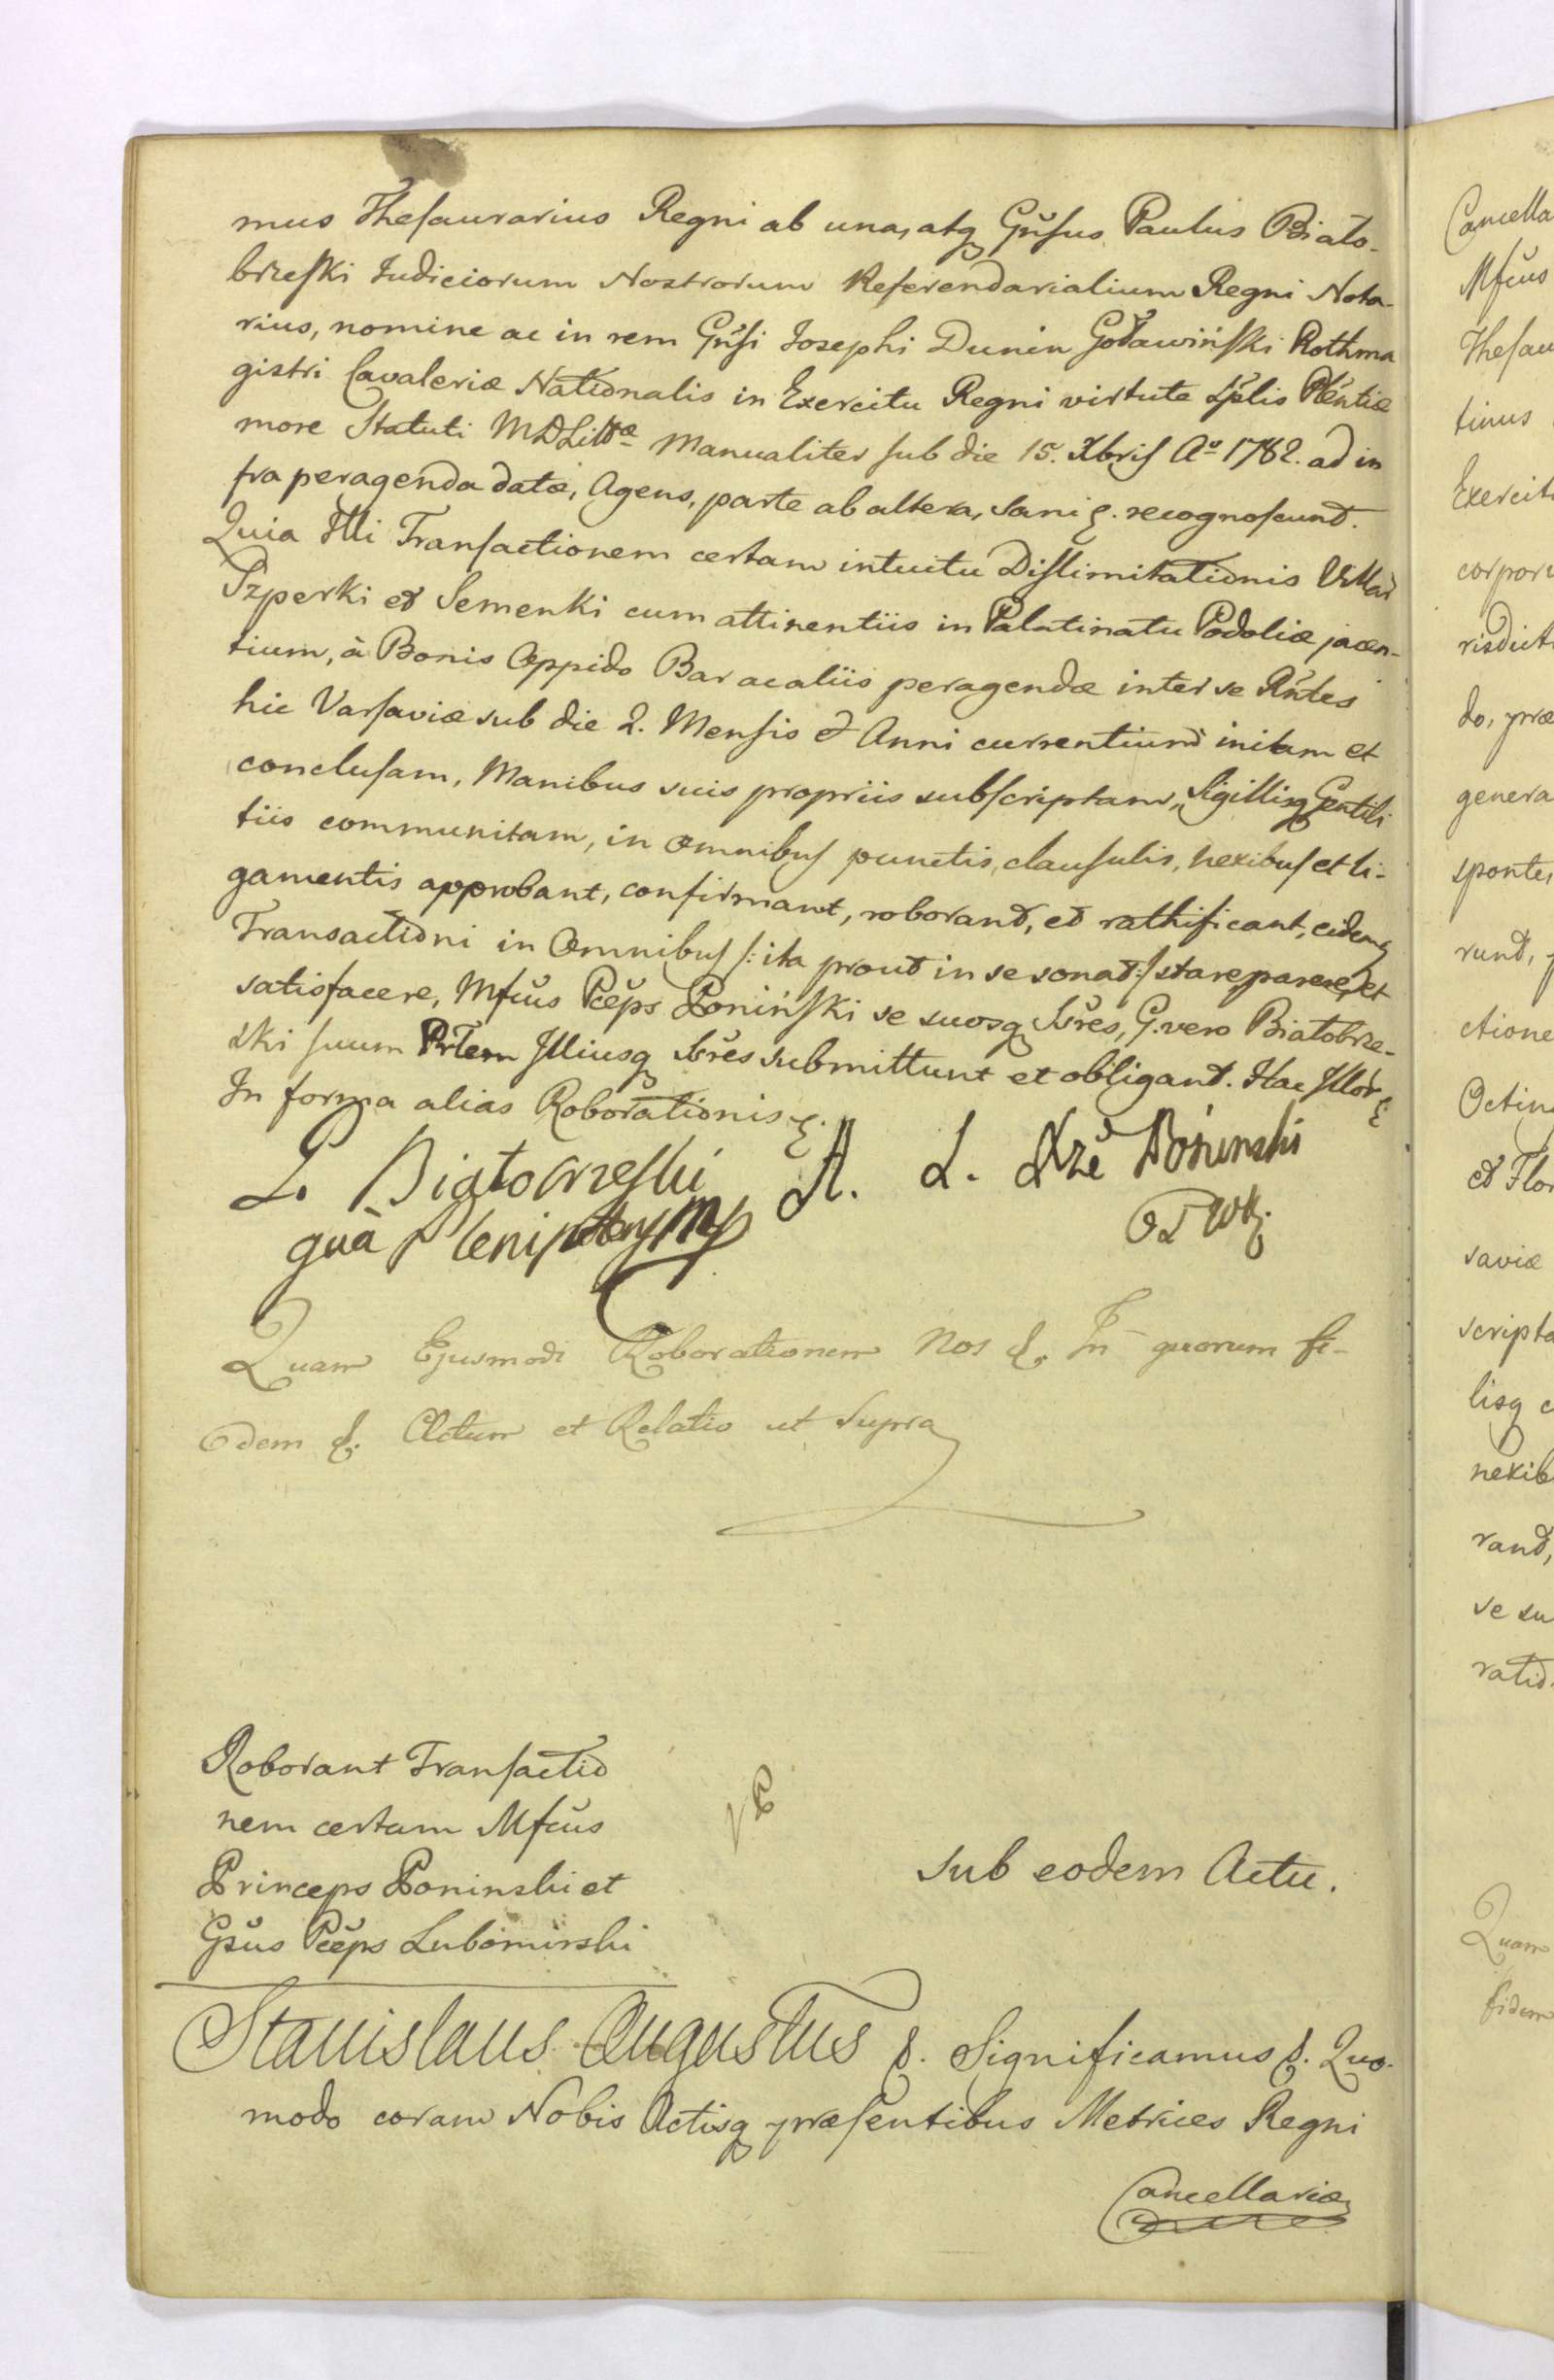 mus Thesaurarius Regni ab una, atq Gnsus Paulus Biało-
brzeski Judiciorum Nostrorum Referendarialium Regni Nota-
rius, nomine ac in rem Gnsi Josephi Dunin Goławiński Rothma
gistri Cavaleriæ Nationalis in Exercitu Regni virtute Splis Plentiæ
more Statuti MDLittæ Manualiter sub die 15. Xbris Aº 1782. ad in
fra peragenda datæ, Agens, parte ab altera, Sani &. recognoscunt.
Quia Illi Transactionem certam intuitu Dislimitationis Villar
Szperki et Semenki cum attinentiis in Palatinatu Podoliæ jacen-
tium, à Bonis Oppido Bar acaliis peragendæ inter se Rntes
hic Varsaviæ sub die 2. Mensis & Anni currentium initam et
conclusam, Manibus suis propriis subscriptam, Sigillisq Gentili
tiis communitam, in omnibus punctis, clausulis, nexibus et li-
gamentis approbant, confirmant, roborant, et rathificant, eidemq
Transactioni in Omnibus /: ita prout in se sonat :/ stare parere, et
satisfacere, Mfcus Pceps Poniński se suosq Sres, G. vero Białobrze-
ski suum Prlem Illiusq Sres submittunt et obligant. Hac Illor &
In forma alias Roborationis &.
P. Białobrzeski
quà Plenipotens mp
A. L. Xże Poninski
P W K.
Quam Ejusmodi Roborationem Nos &. In quorum fi-
dem &. Actum et Relatio ut Supra
Roborant Transactio
nem certam Mfcus
Princeps Poninski et
Gsus Pceps Lubomirski
Sub eodem Actu.
Stanislaus Augustus &. Significamus &. Quo-
modo coram Nobis Actisq præsentibus Metrices Regni
Cancellariæ
Cancella
Mfcus
Thesau
tinus
Exercit
corpor
risdict
do, præ
genera
sponte,
runt,
ctione
Octin
et Flor
saviæ
scripta
lisq c
nexib
rant,
se su
ratio
Quam
fidem